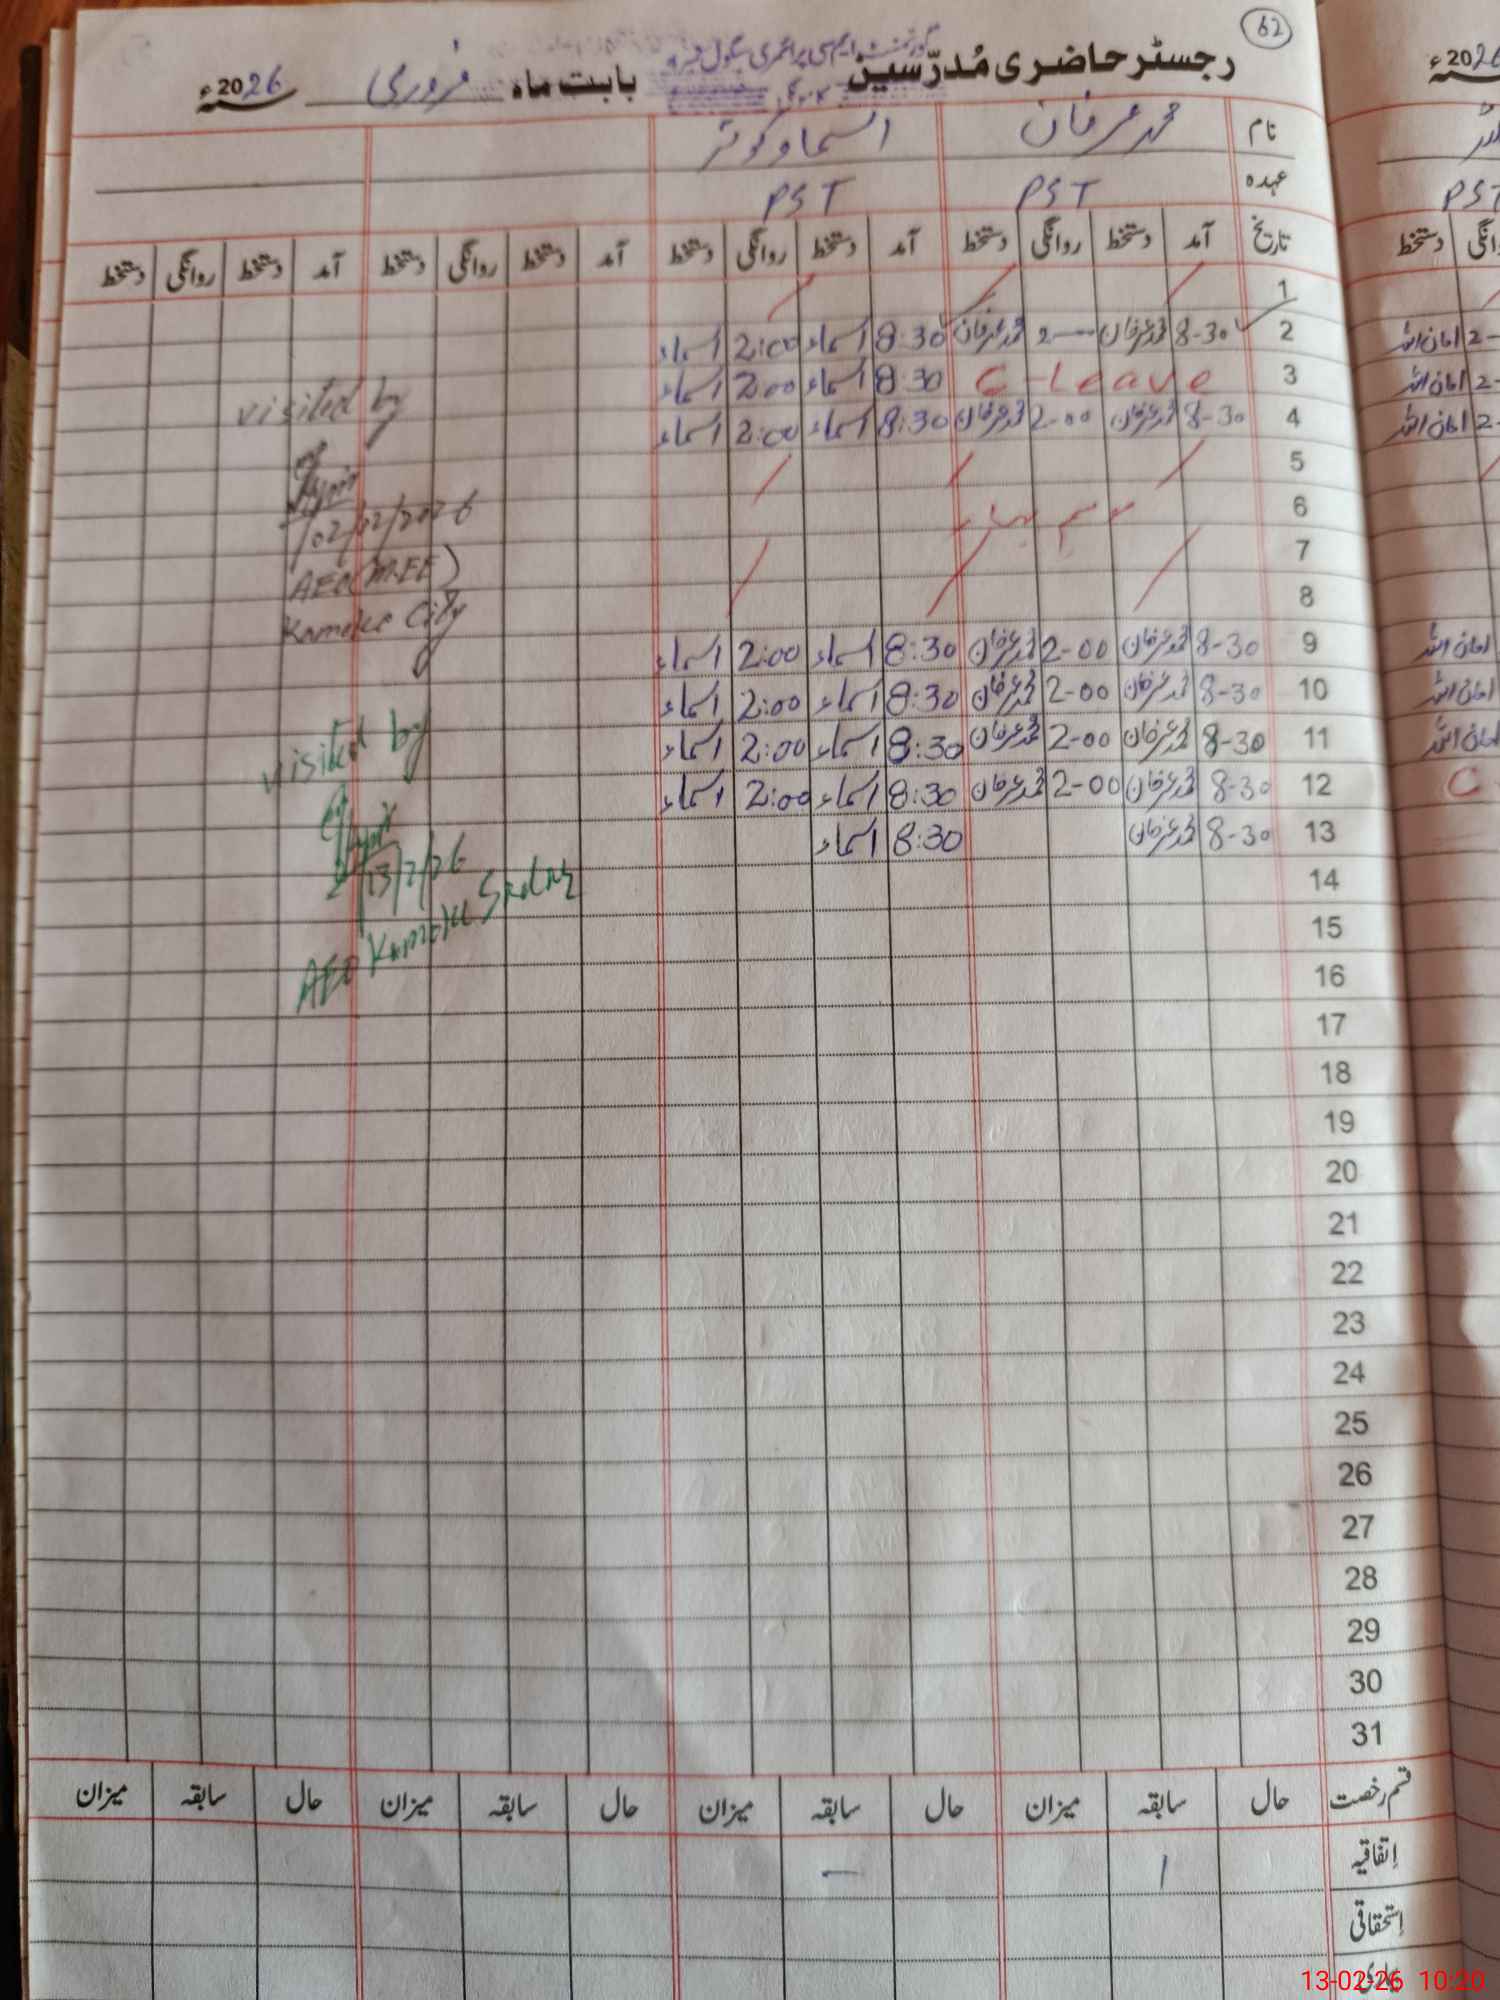 62
رجسٹر حاضری مُدرّسین گورنمنٹ ایم سی پرائمری سکول بابت ماہ فروری 2026ء
نام محمد عرفان اسماء کوثر
عہدہ PST PST
تاریخ آمد دستخط روانگی دستخط آمد دستخط روانگی دستخط آمد دستخط روانگی دستخط آمد دستخط روانگی دستخط
1
2 8-30 محمد عرفان 2 محمد عرفان 8:30 اسماء 2:00 اسماء
3 C-Leave 8:30 اسماء 2:00 اسماء
4 8-30 محمد عرفان 2-00 محمد عرفان 8:30 اسماء 2:00 اسماء
5
6
7
8
9 8-30 محمد عرفان 2-00 محمد عرفان 8:30 اسماء 2:00 اسماء
10 8-30 محمد عرفان 2-00 محمد عرفان 8:30 اسماء 2:00 اسماء
11 8-30 محمد عرفان 2-00 محمد عرفان 8:30 اسماء 2:00 اسماء
12 8-30 محمد عرفان 2-00 محمد عرفان 8:30 اسماء 2:00 اسماء
13 8-30 محمد عرفان 8:30 اسماء
14
15
16
17
18
19
20
21
22
23
24
25
26
27
28
29
30
31
visited by
02/02/2026
AEO (M-EE)
Kamoke City
visited by
13/2/26
AEO Kamoke Sadar
قسم رخصت حال سابقہ میزان حال سابقہ میزان حال سابقہ میزان حال سابقہ میزان
اِتفاقیہ 1 –
اِستحقاقی
بیماری
2026ء
PST
دستخط
امان اللہ 2-
امان اللہ 2-
امان اللہ 2-
امان اللہ
امان اللہ
امان اللہ
C
13-02-26 10:20